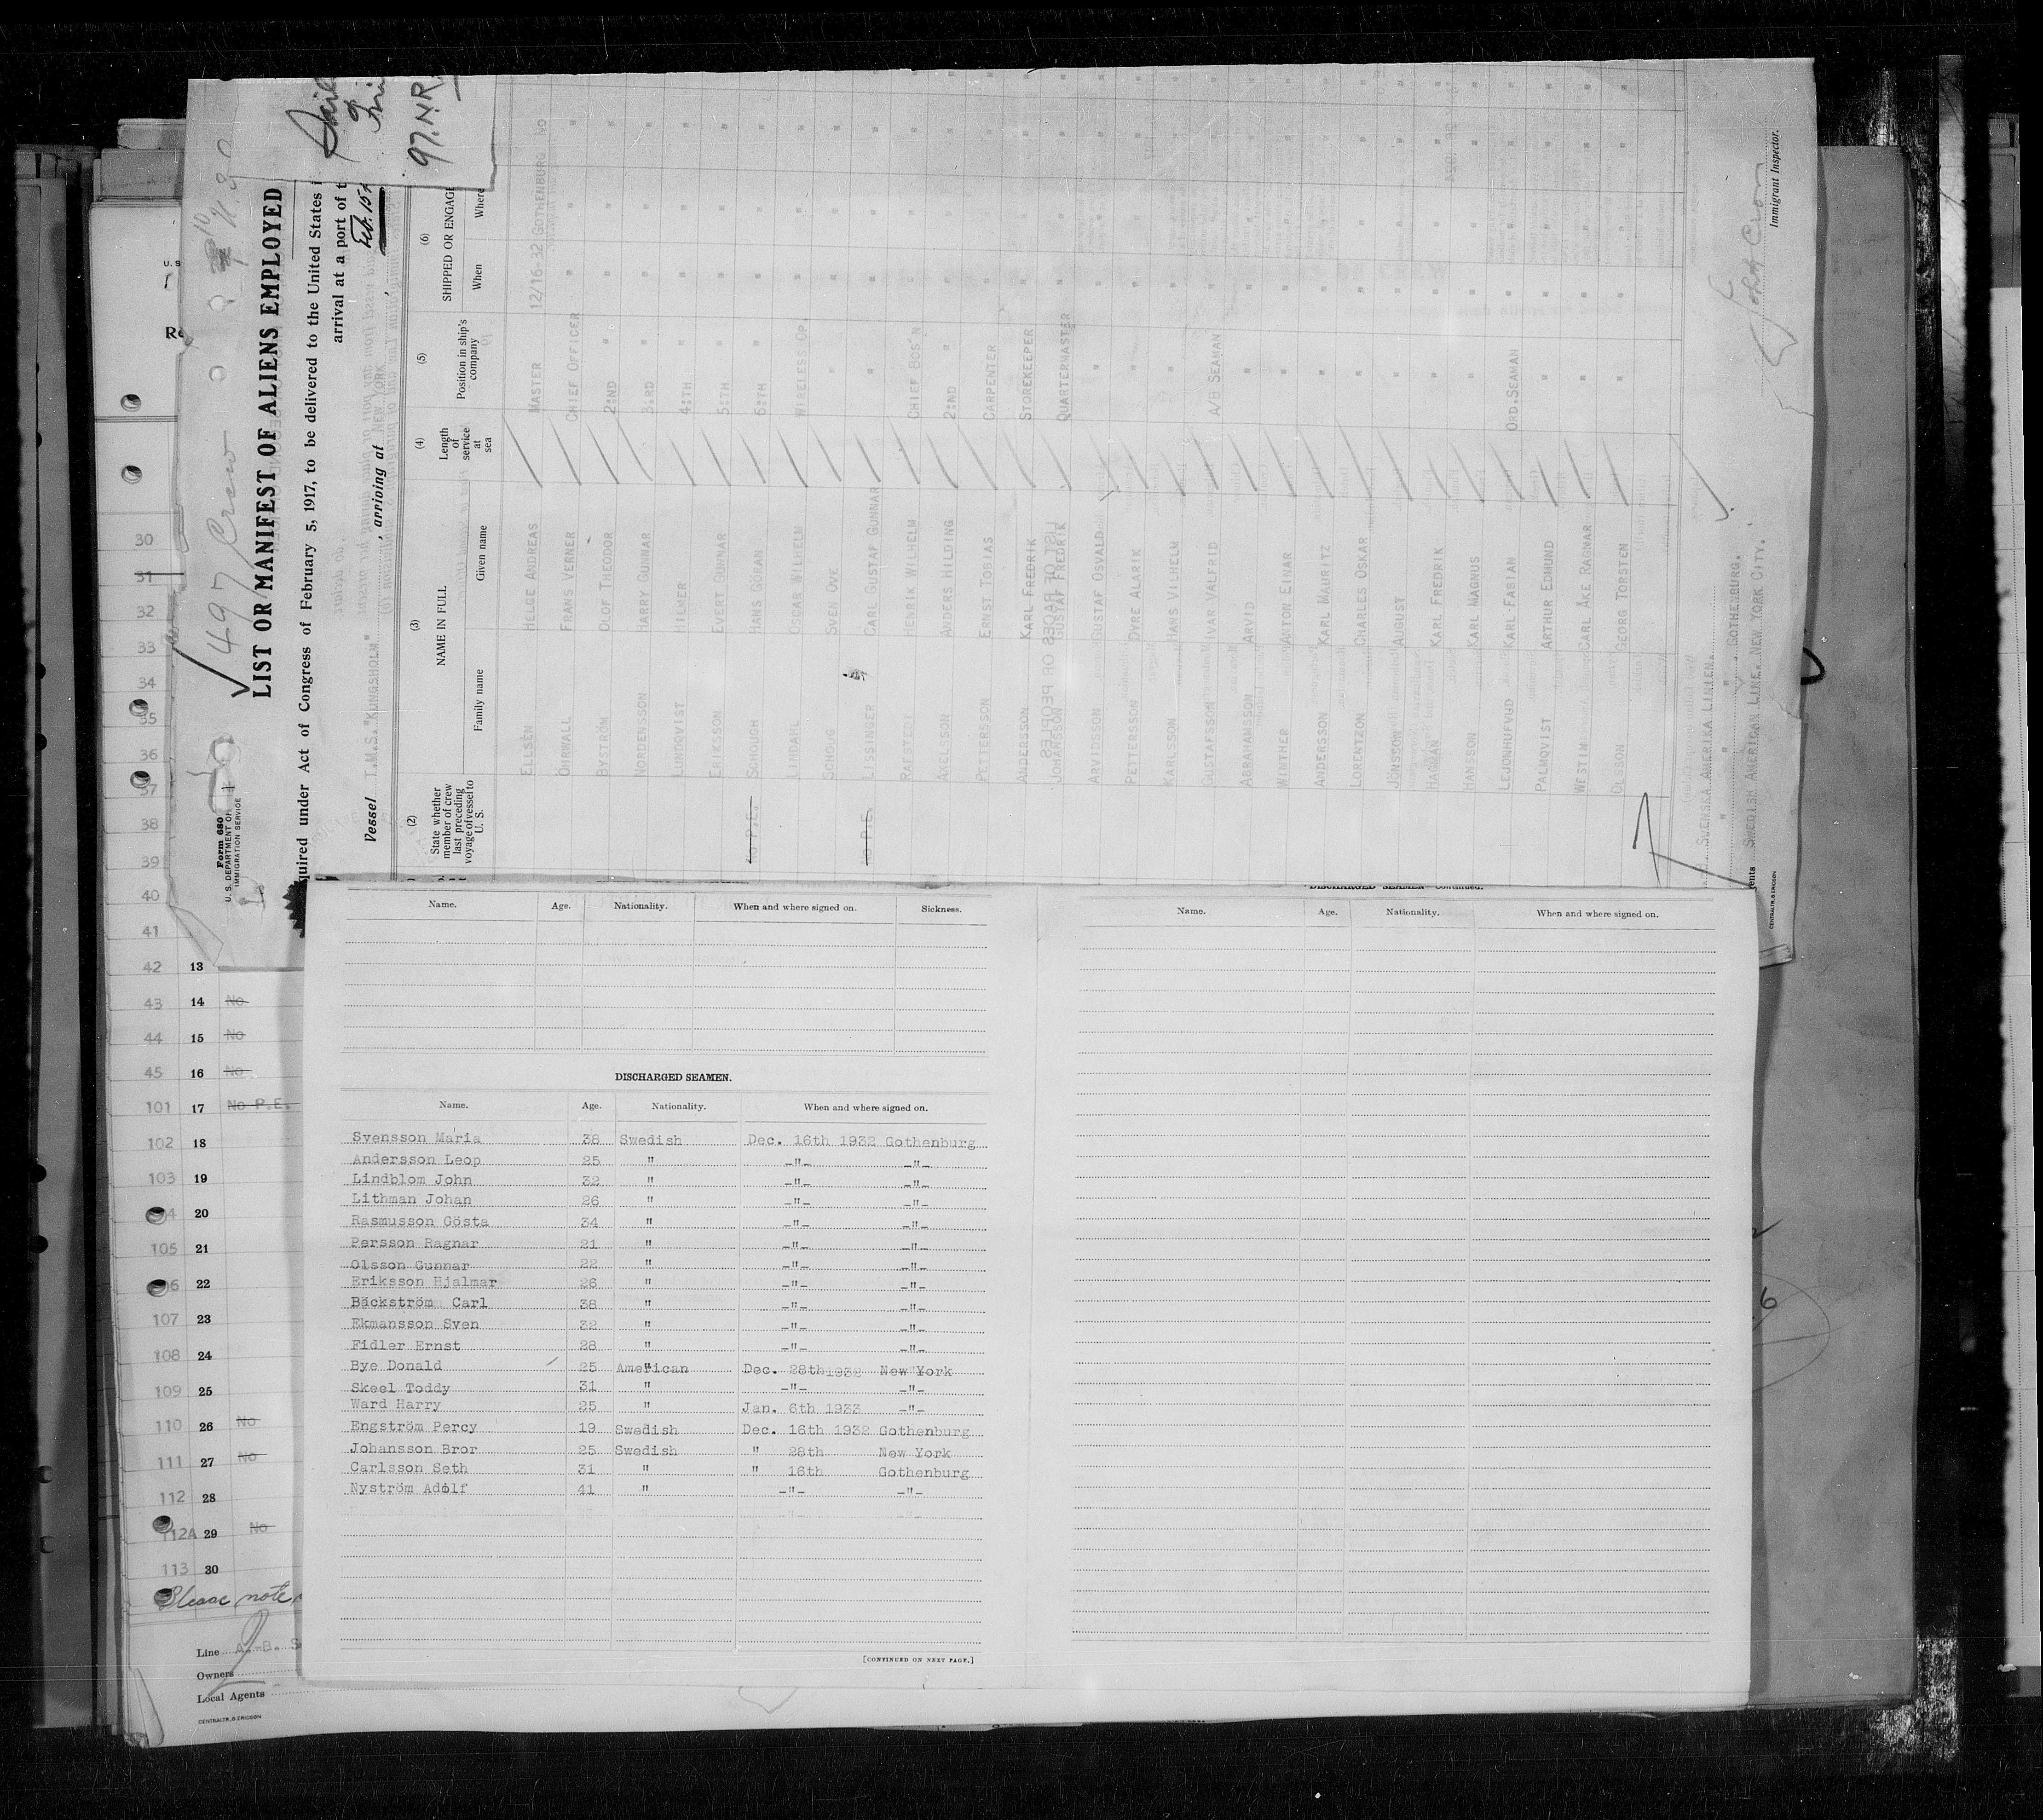 ✓ 497 Crew
Form 680
U. S. DEPARTMENT OF
IMMIGRATION SERVICE
LIST OR MANIFEST OF ALIENS EMPLOYED
quired under Act of Congress of February 5, 1917, to be delivered to the United States i
arrival at a port of t
Vessel T.M.S."KUNGSHOLM" , arriving at NEW YORK , Feb. 15
97. N.R.
(2) (3) (4) (5) (6)
State whether member of crew last preceding voyage of vessel to U. S.
NAME IN FULL
Length of service at sea
Position in ship's company
SHIPPED OR ENGAGE
Family name Given name When Where
ELLSÉN HELGE ANDREAS MASTER 12/16-32 GOTHENBURG
ÖHRWALL FRANS VERNER CHIEF OFFICER " "
BYSTRÖM OLOF THEODOR 2:ND " " "
NORDENSSON HARRY GUNNAR 3:RD " " "
LUNDQVIST HILMER 4:TH " " "
ERIKSSON EVERT GUNNAR 5:TH " " "
No P.E. SCHOUGH HANS GÖRAN 6:TH " " "
LINDAHL OSCAR WILHELM WIRELESS OP. " "
SCHOUG SVEN OVE " " "
No P.E. LISSINGER CARL GUSTAF GUNNAR " " "
RAFSTEDT HENRIK WILHELM CHIEF BOS'N " "
AXELSSON ANDERS HILDING 2:ND " " "
PETTERSSON ERNST TOBIAS CARPENTER " "
ANDERSSON KARL FREDRIK STOREKEEPER " "
JOHANSSON GUSTAF FREDRIK QUARTERMASTER " "
ARVIDSSON GUSTAF OSVALD " " "
PETTERSSON DYRE ALARIK " " "
KARLSSON HANS VILHELM " " "
GUSTAFSSON IVAR VALFRID A/B SEAMAN " "
ABRAHAMSSON ARVID " " "
WINTHER ANTON EINAR " " "
ANDERSSON KARL MAURITZ " " "
LORENTZON CHARLES OSKAR " " "
JÖNSSON AUGUST " " "
HAGMAN KARL FREDRIK " " "
HANSSON KARL MAGNUS " " "
LEJONHUFVUD KARL FABIAN ORD.SEAMAN " "
PALMQVIST ARTHUR EDMUND " " "
WESTIN CARL ÅKE RAGNAR " " "
OLSSON GEORG TORSTEN " " "
SVENSKA AMERIKA LINIEN.
" " " GOTHENBURG.
ents SWEDISH AMERICAN LINE. NEW YORK CITY.
CENTRALTR. G. ERICSON
Immigrant Inspector.
U. S
Re
30
31
32
33
34
35
36
37
38
39
40
41
42 13
43 14 No
44 15 No
45 16 No
101 17 No P.E.
102 18
103 19
20
105 21
22
107 23
108 24
109 25
110 26 No
111 27 No
112 28
112A 29 No
113 30
Please note
Line A.-B. S
Owners
Local Agents
CENTRALTR. G. ERICSON
Name. Age. Nationality. When and where signed on. Sickness.
DISCHARGED SEAMEN.
Name. Age. Nationality. When and where signed on.
Svensson Maria 38 Swedish Dec. 16th 1932 Gothenburg
Andersson Leop 25 " -"- -"-
Lindblom John 32 " -"- -"-
Lithman Johan 26 " -"- -"-
Rasmusson Gösta 34 " -"- -"-
Persson Ragnar 21 " -"- -"-
Olsson Gunnar 22 " -"- -"-
Eriksson Hjalmar 26 " -"- -"-
Bäckström Carl 38 " -"- -"-
Ekmansson Sven 32 " -"- -"-
Fidler Ernst 28 " -"- -"-
Bye Donald 25 American Dec. 28th 1932 New York
Skeel Toddy 31 " -"- -"-
Ward Harry 25 " Jan. 6th 1933 -"-
Engström Percy 19 Swedish Dec. 16th 1932 Gothenburg
Johansson Bror 25 Swedish " 28th New York
Carlsson Seth 31 " " 16th Gothenburg
Nyström Adolf 41 " -"- -"-
[CONTINUED ON NEXT PAGE.]
DISCHARGED SEAMEN—Continued.
Name. Age. Nationality. When and where signed on.